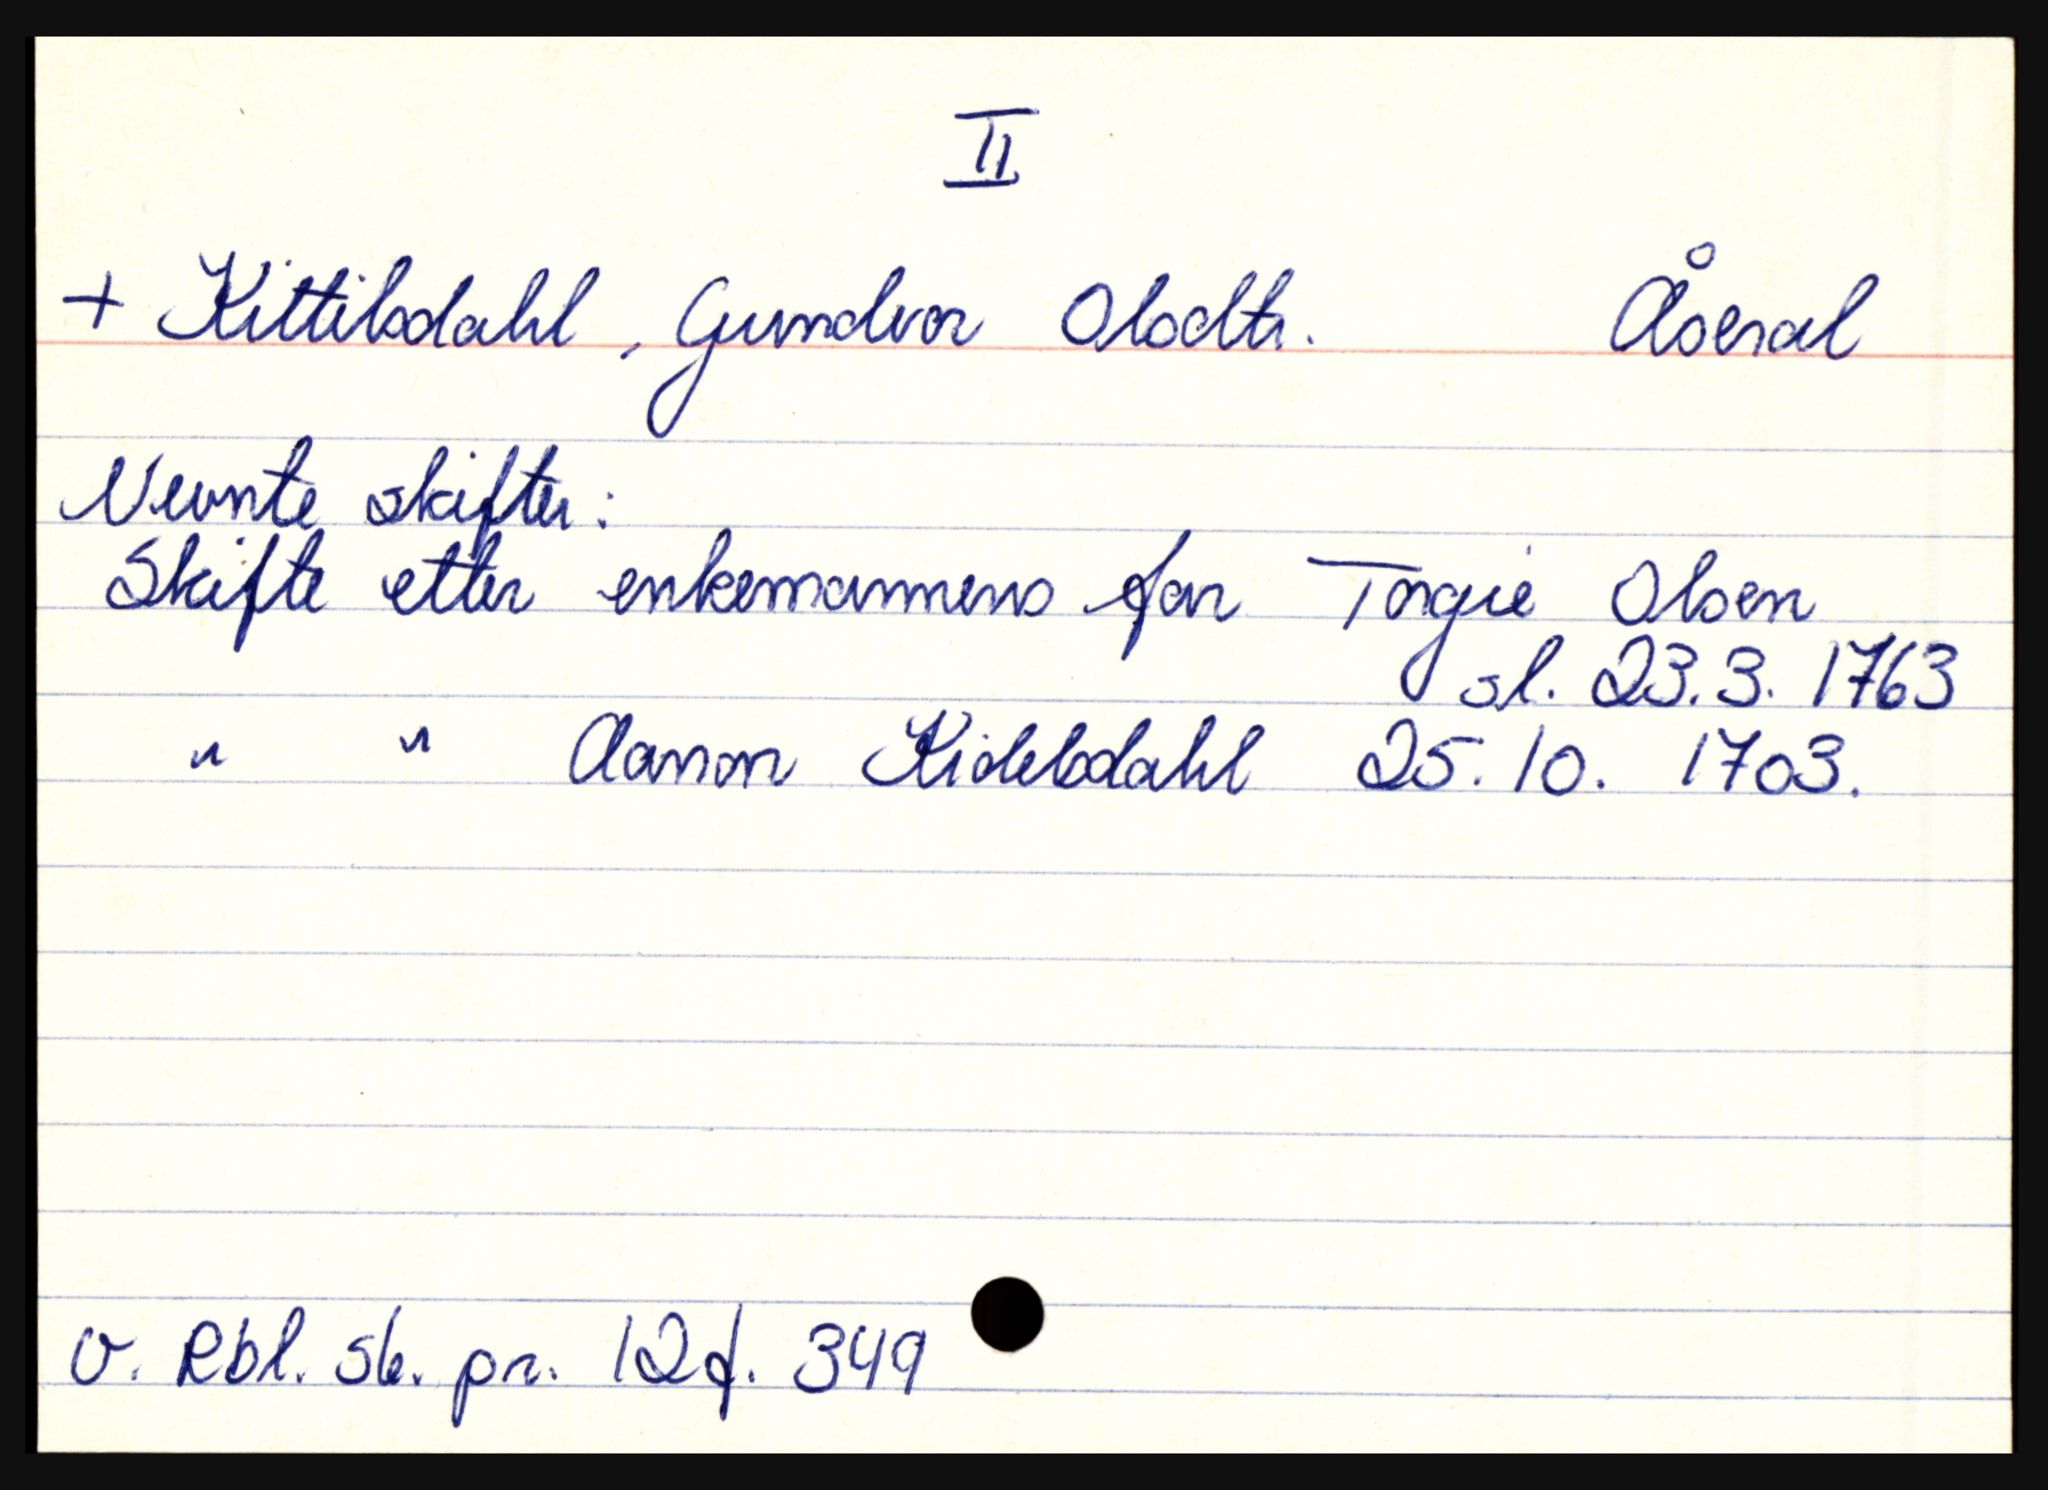 II
+ Kittilsdahl, Gundvor Olsdtr. Åseral
Nevnte skifter:
Skifte etter enkemannens far Torgie Olsen
sl. 23.3. 1763
" " Aanon Kidelsdahl 25.10. 1703.
V. Rbl. sk. pr. 12 f. 349